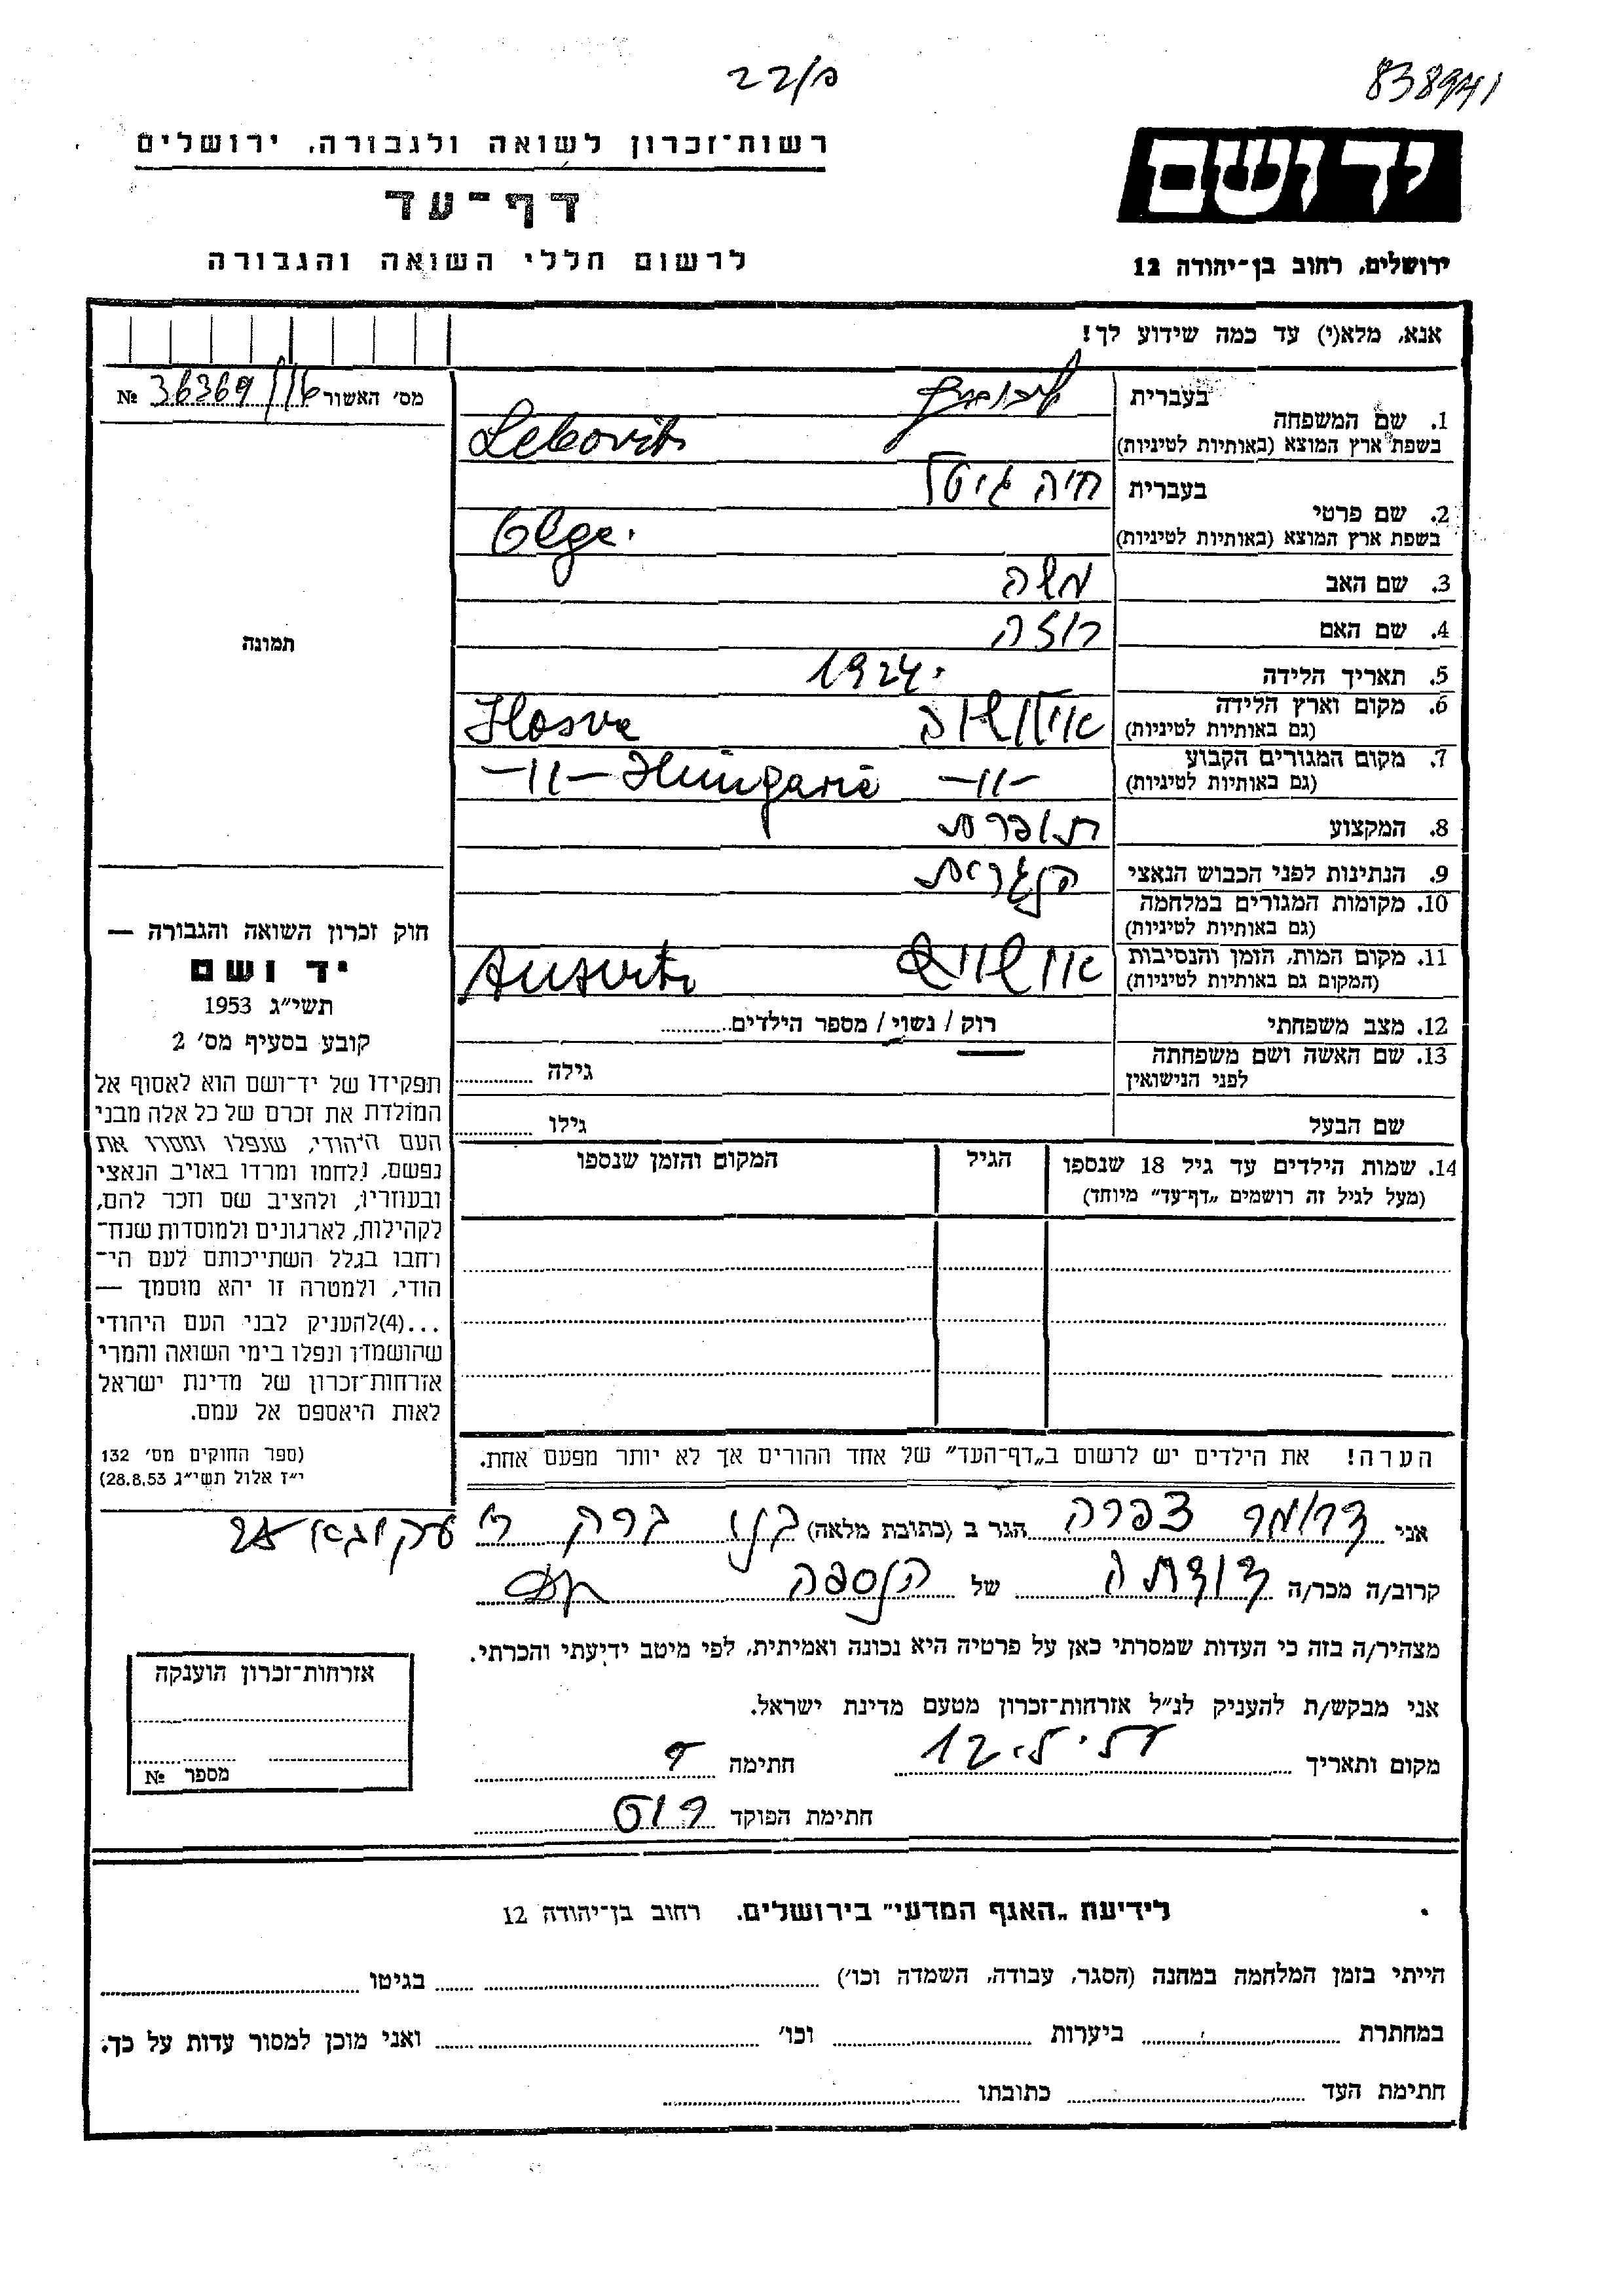 22/פ
838941
רשות־זכרון לשואה ולגבורה. ירושלים
דף־עד
לרשום חללי השואה והגבורה
יד ושם
ירושלים, רחוב בן־יהודה 12
אנא, מלא(י) עד כמה שידוע לך!
מס׳ האשור 36369/116 №
1. שם המשפחה בעברית
בשפת ארץ המוצא (באותיות לטיניות) Lebovits
2. שם פרטי בעברית חיה גיטל
בשפת ארץ המוצא (באותיות לטיניות) Olga.
3. שם האב משה
4. שם האם רוזה
5. תאריך הלידה 1924.
6. מקום וארץ הלידה (גם באותיות לטיניות) אילושווה Ilosva
7. מקום המגורים הקבוע (גם באותיות לטיניות) -11- -11- Hungarie
8. המקצוע תופרת
9. הנתינות לפני הכבוש הנאצי הונגרית
10. מקומות המגורים במלחמה (גם באותיות לטיניות)
11. מקום המות, הזמן והנסיבות (המקום גם באותיות לטיניות) אושוויץ Ausvits
12. מצב משפחתי רוק / נשוי / מספר הילדים
13. שם האשה ושם משפחתה לפני הנישואין גילה
שם הבעל גילו
14. שמות הילדים עד גיל 18 שנספו הגיל המקום והזמן שנספו
(מעל לגיל זה רושמים „דף־עד״ מיוחד)
הערה! את הילדים יש לרשום ב„דף־העד״ של אחד ההורים אך לא יותר מפעם אחת.
תמונה
חוק זכרון השואה והגבורה —
יד ושם
תשי״ג 1953
קובע בסעיף מס׳ 2
תפקידו של יד־ושם הוא לאסוף אל
המולדת את זכרם של כל אלה מבני
העם היהודי, שנפלו ומסרו את
נפשם, נלחמו ומרדו באויב הנאצי
ובעוזריו, ולהציב שם וזכר להם,
לקהילות, לארגונים ולמוסדות שנח־
רחבו בגלל השתייכותם לעם הי־
הודי, ולמטרה זו יהא מוסמך —
...(4)להעניק לבני העם היהודי
שהושמדו ונפלו בימי השואה והמרי
אזרחות־זכרון של מדינת ישראל
לאות היאספם אל עמם.
(ספר החוקים מס׳ 132
י״ז אלול תשי״ג 28.8.53)
אני צפרה הגר ב (כתובת מלאה) בני ברק
קרוב/ה מכר/ה דודתה של הנספה
מצהיר/ה בזה כי העדות שמסרתי כאן על פרטיה היא נכונה ואמיתית, לפי מיטב ידיעתי והכרתי.
אני מבקש/ת להעניק לנ״ל אזרחות־זכרון מטעם מדינת ישראל.
מקום ותאריך חתימה
חתימת הפוקד
אזרחות־זכרון הוענקה
מספר №
לידיעת „האגף המדעי״ בירושלים. רחוב בן־יהודה 12
הייתי בזמן המלחמה במחנה (הסגר, עבודה, השמדה וכו׳) בגיטו
במחתרת ביערות וכו׳ ואני מוכן למסור עדות על כך.
חתימת העד כתובתו